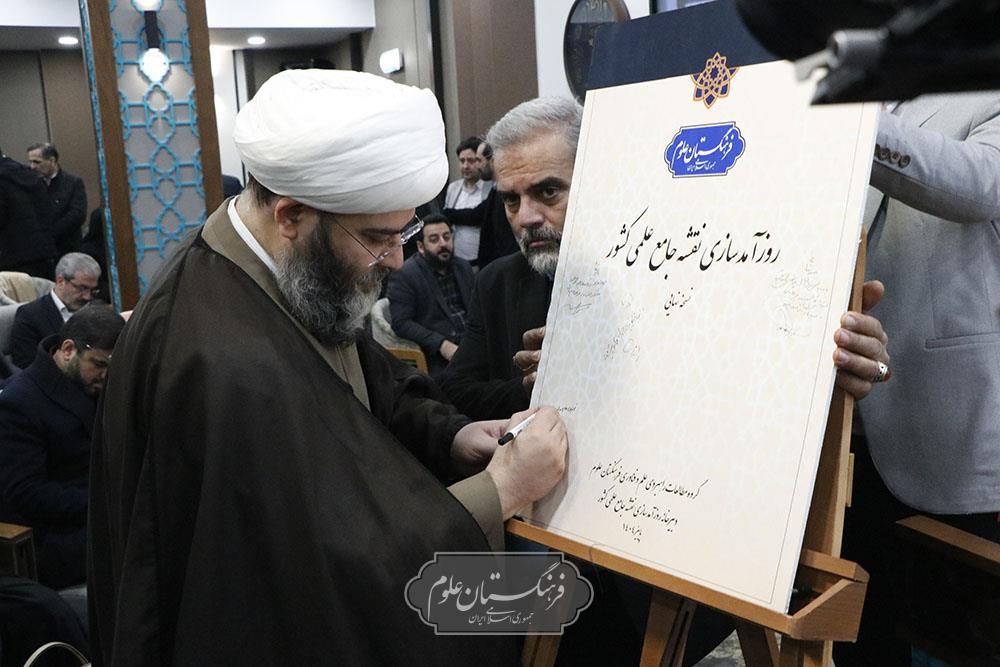 فرهنگستان علوم
جمهوری اسلامی ایران
روزآمدسازی نقشه جامع علمی کشور
نسخه نهایی
گروه مطالعات راهبردی علم و فناوری فرهنگستان علوم
دبیرخانه روزآمدسازی نقشه جامع علمی کشور
پاییز ۱۴۰۴
فرهنگستان علوم
جمهوری اسلامی ایران